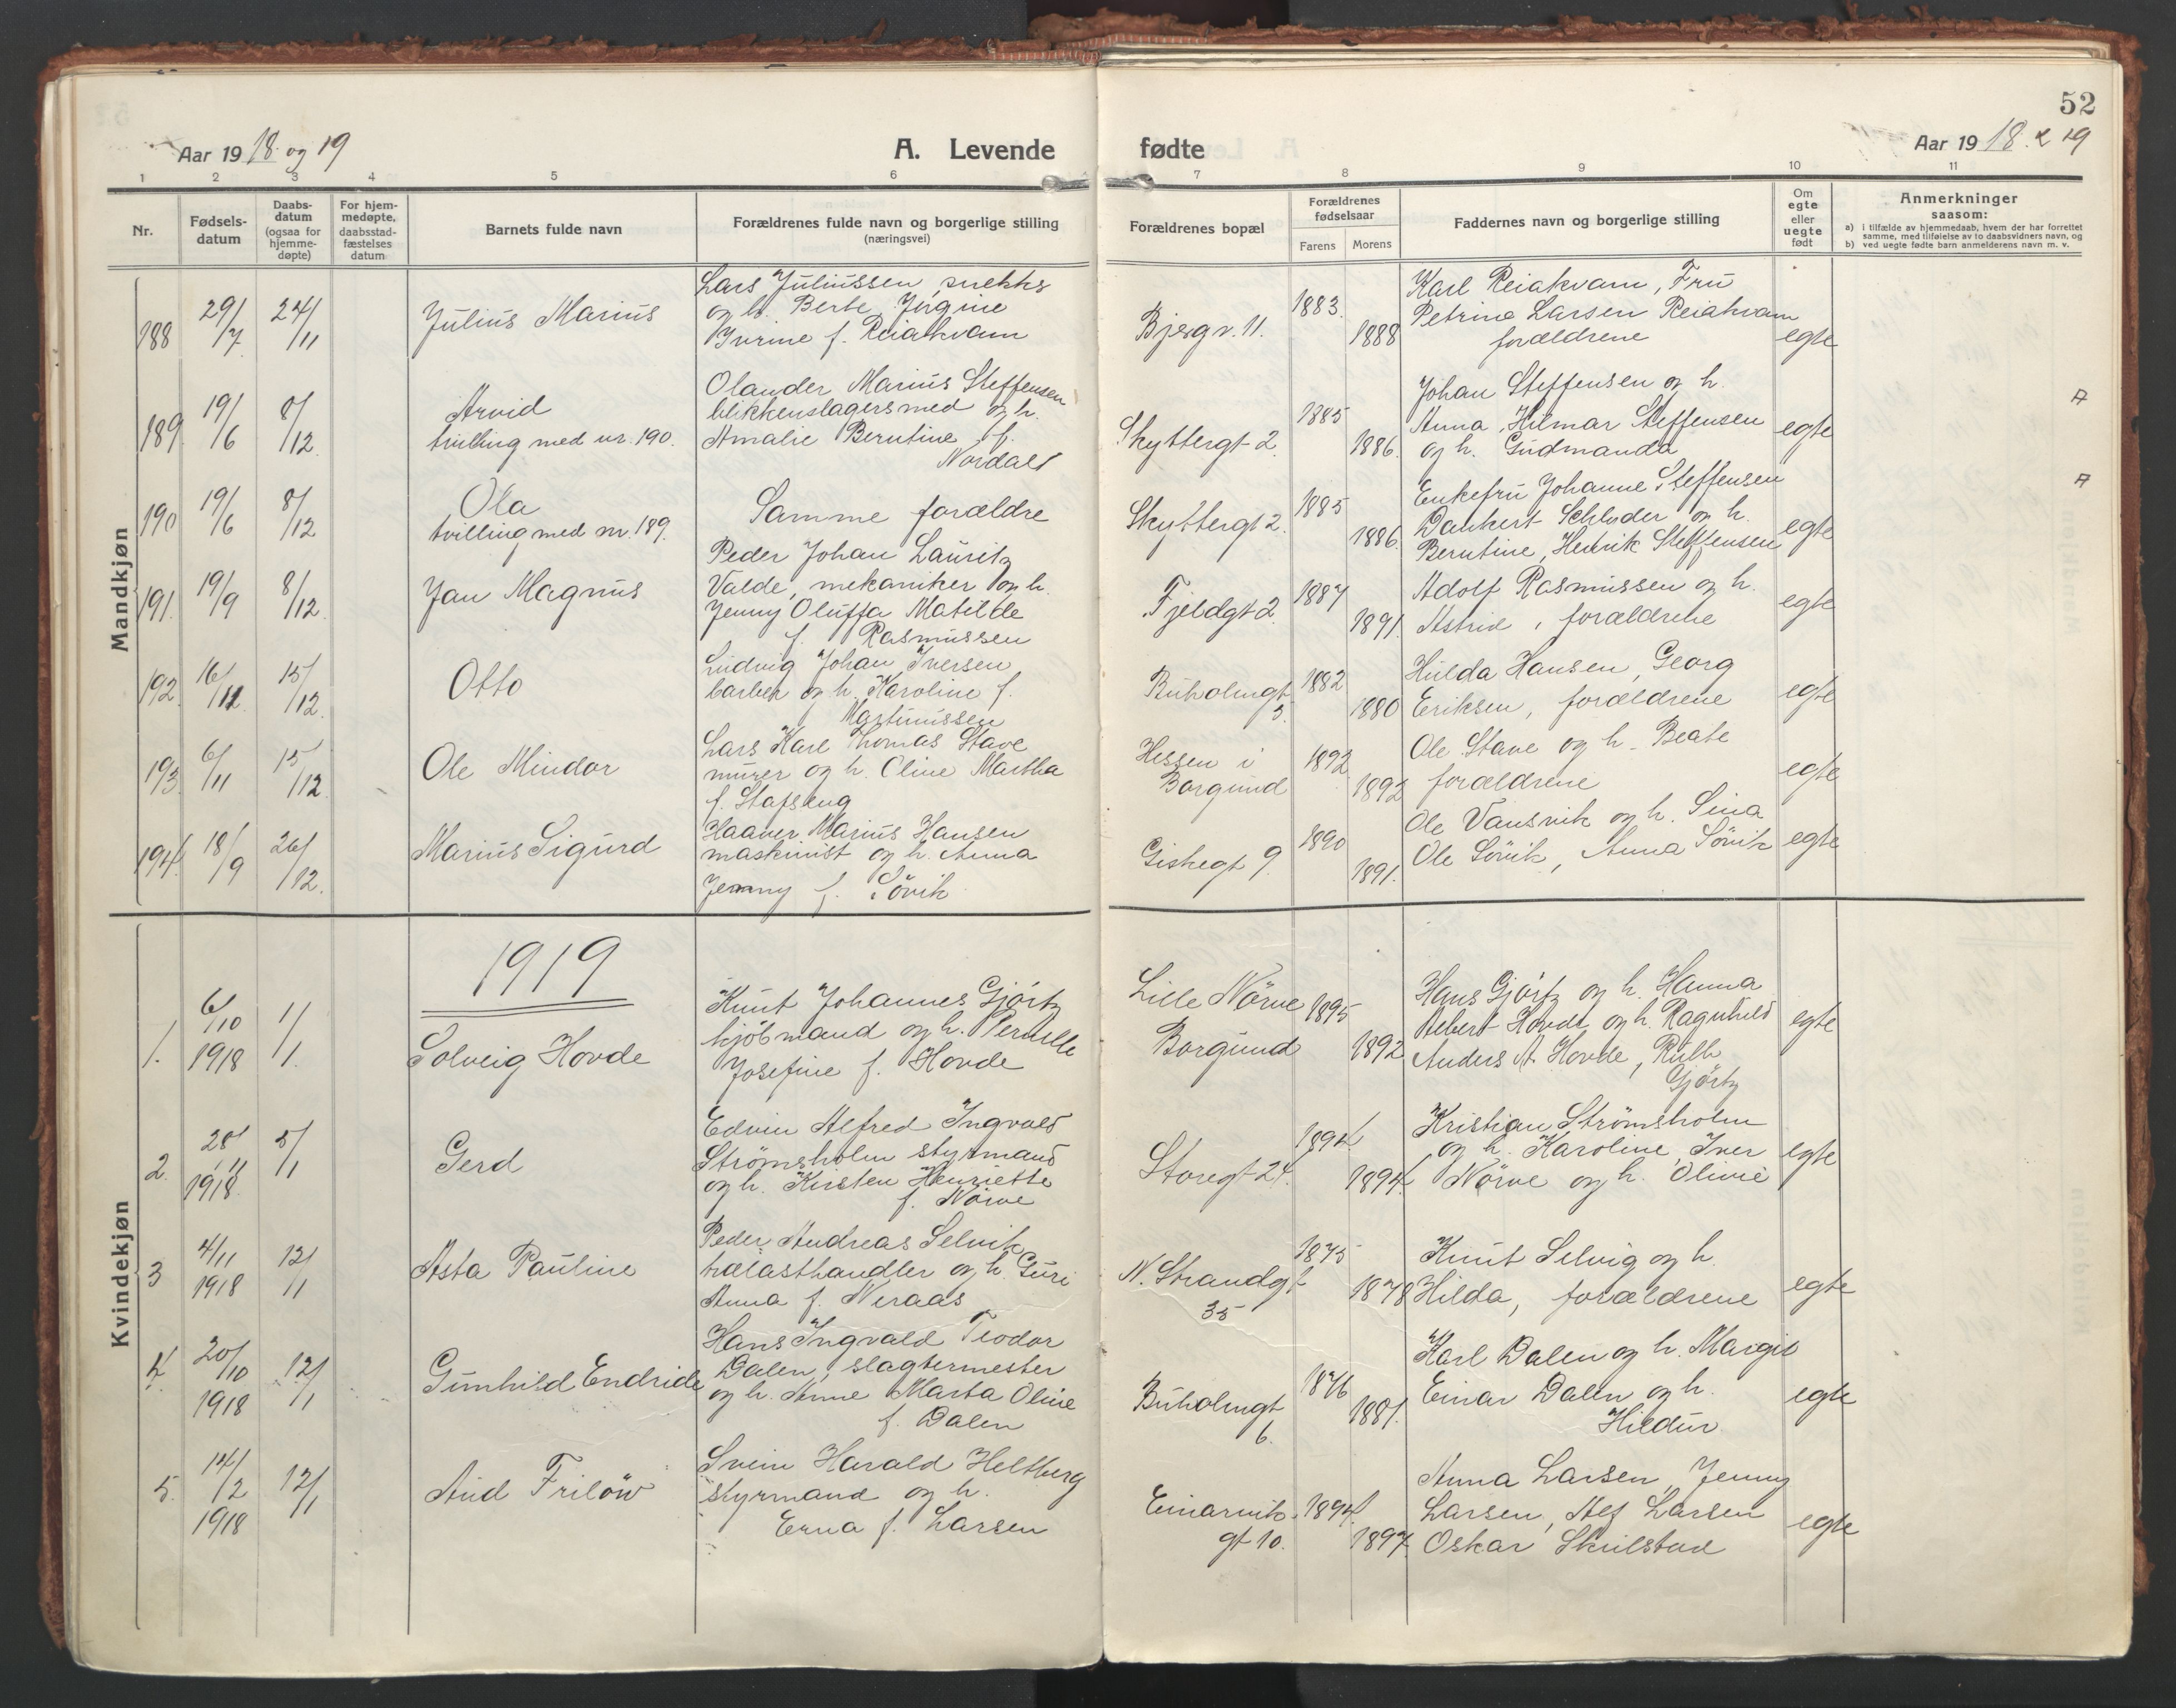 52
Aar 1918 og 19
A. Levende fødte
Aar 1918 & 19
1 2 3 4 5 6 7 8 9 10 11
Nr.
Fødsels-
datum
Daabs-
datum
(ogsaa for
hjemme-
døpte)
For hjem-
medøpte,
daabsstad-
fæstelses
datum
Barnets fulde navn
Forældrenes fulde navn og borgerlige stilling
(næringsvei)
Forældrenes bopæl
Forældrenes
fødselsaar
Farens Morens
Faddernes navn og borgerlige stilling
Om
egte
eller
uegte
født
Anmerkninger
saasom:
a) i tilfælde av hjemmedaab, hvem der har forrettet
samme, med tilføielse av to daabsvidners navn, og
b) ved uegte fødte barn anmelderens navn m. v.
Mandkjøn
188 29/7 24/11 Julius Marius
Lars Juliussen
og h. Berte Jørgine
Ivrine f. Reiakvam
Bjergv. 11. 1883. 1888
Karl Reiakvam, Fru
Petrine Larsen Reiakvam
forældrene
egte
189 19/6 8/12 Arvid
tvilling med nr. 190.
Olander Marius Steffensen
blikkenslagersmed og h.
Amalie Berntine f.
Nordal
Skyttergt 2. 1885 1886.
Johan Steffensen og h.
Anna, Hilmar Steffensen
og h. Gudmanda
egte
A
190 19/6 8/12 Ola
tvilling med nr. 189.
Samme forældre
Skyttergt 2. 1885 1886.
Enkefru Johanne Steffensen
Dankert Schlyder og h.
Berntine, Henrik Steffensen
egte
A
191. 19/9 8/12. Jan Magnus
Peder Johan Lauritz
Valde, mekaniker og h.
Jenny Oluffa Matilde
f. Rasmussen
Fjeldgt 2. 1887 1891.
Adolf Rasmussen og h.
Astrid, forældrene
egte
192. 16/11. 15/12. Otto
Ludvig Johan Iversen
barber og h. Karoline f.
Martinussen
Buholmgt
5. 1882 1880
Hulda Hansen, Georg
Eriksen, forældrene
egte
193 6/11 15/12. Ole Mindor
Lars Karl Thomas Stave
murer og h. Oline Martha
f. Stafseng
Hessen i
Borgund 1892 1892
Ole Stave og h. Beate
forældrene
egte
194. 18/9 26/12. Marius Sigurd
Haaver Marius Hansen
maskinist og h. Anna
Jenny f. Sövik
Giskegt 9. 1890 1891.
Ole Vansvik og h. Sina
Ole Sövik, Anna Sövik
egte
Kvindekjøn
1919
1. 6/10 1918 1/1. Solveig Hovde
Knut Johannes Gjörtz
kjöbmand og h. Pernille
Josefine f. Hovde
Lille Nörve
Borgund 1895 1892
Hans Gjörtz og h. Hanna
Albert Hovde og h. Ragnhild
Anders A. Hovde, Ruth
Gjörtz
egte
2. 28/11 1918. 5/1 Gerd
Edvin Alfred Ingvald
Strömsholm styrmand
og h. Kirsten Henriette
f. Nörve
Storegt 24. 1894 1894.
Kristian Strömsholm
og h. Karoline, Iver
Nörve og h. Olivie
egte
3 4/11 1918 12/1 Asta Pauline
Peder Andreas Selvik
trælasthandler og h. Guri
Anna f. Neraas
N. Strandgt
35 1875 1878
Knut Selvig og h.
Hilda, forældrene
egte
4. 20/10 1918 12/1 Gunhild Endride
Hans Ingvald Teodor
Dalen, slagtermester
og h. Anne Marta Oline
f. Dalen
Buholmgt
6. 1876 1881.
Karl Dalen og h. Margit
Einar Dalen og h.
Hildur
egte
5. 14/2 1918 12/1 Aud Frilöw
Svein Harald Heltberg
styrmand og h.
Erna f. Larsen
Einarvik-
gt 10. 1894. 1897.
Anna Larsen, Jenny
Larsen, Alf Larsen
Oskar Skulstad
egte